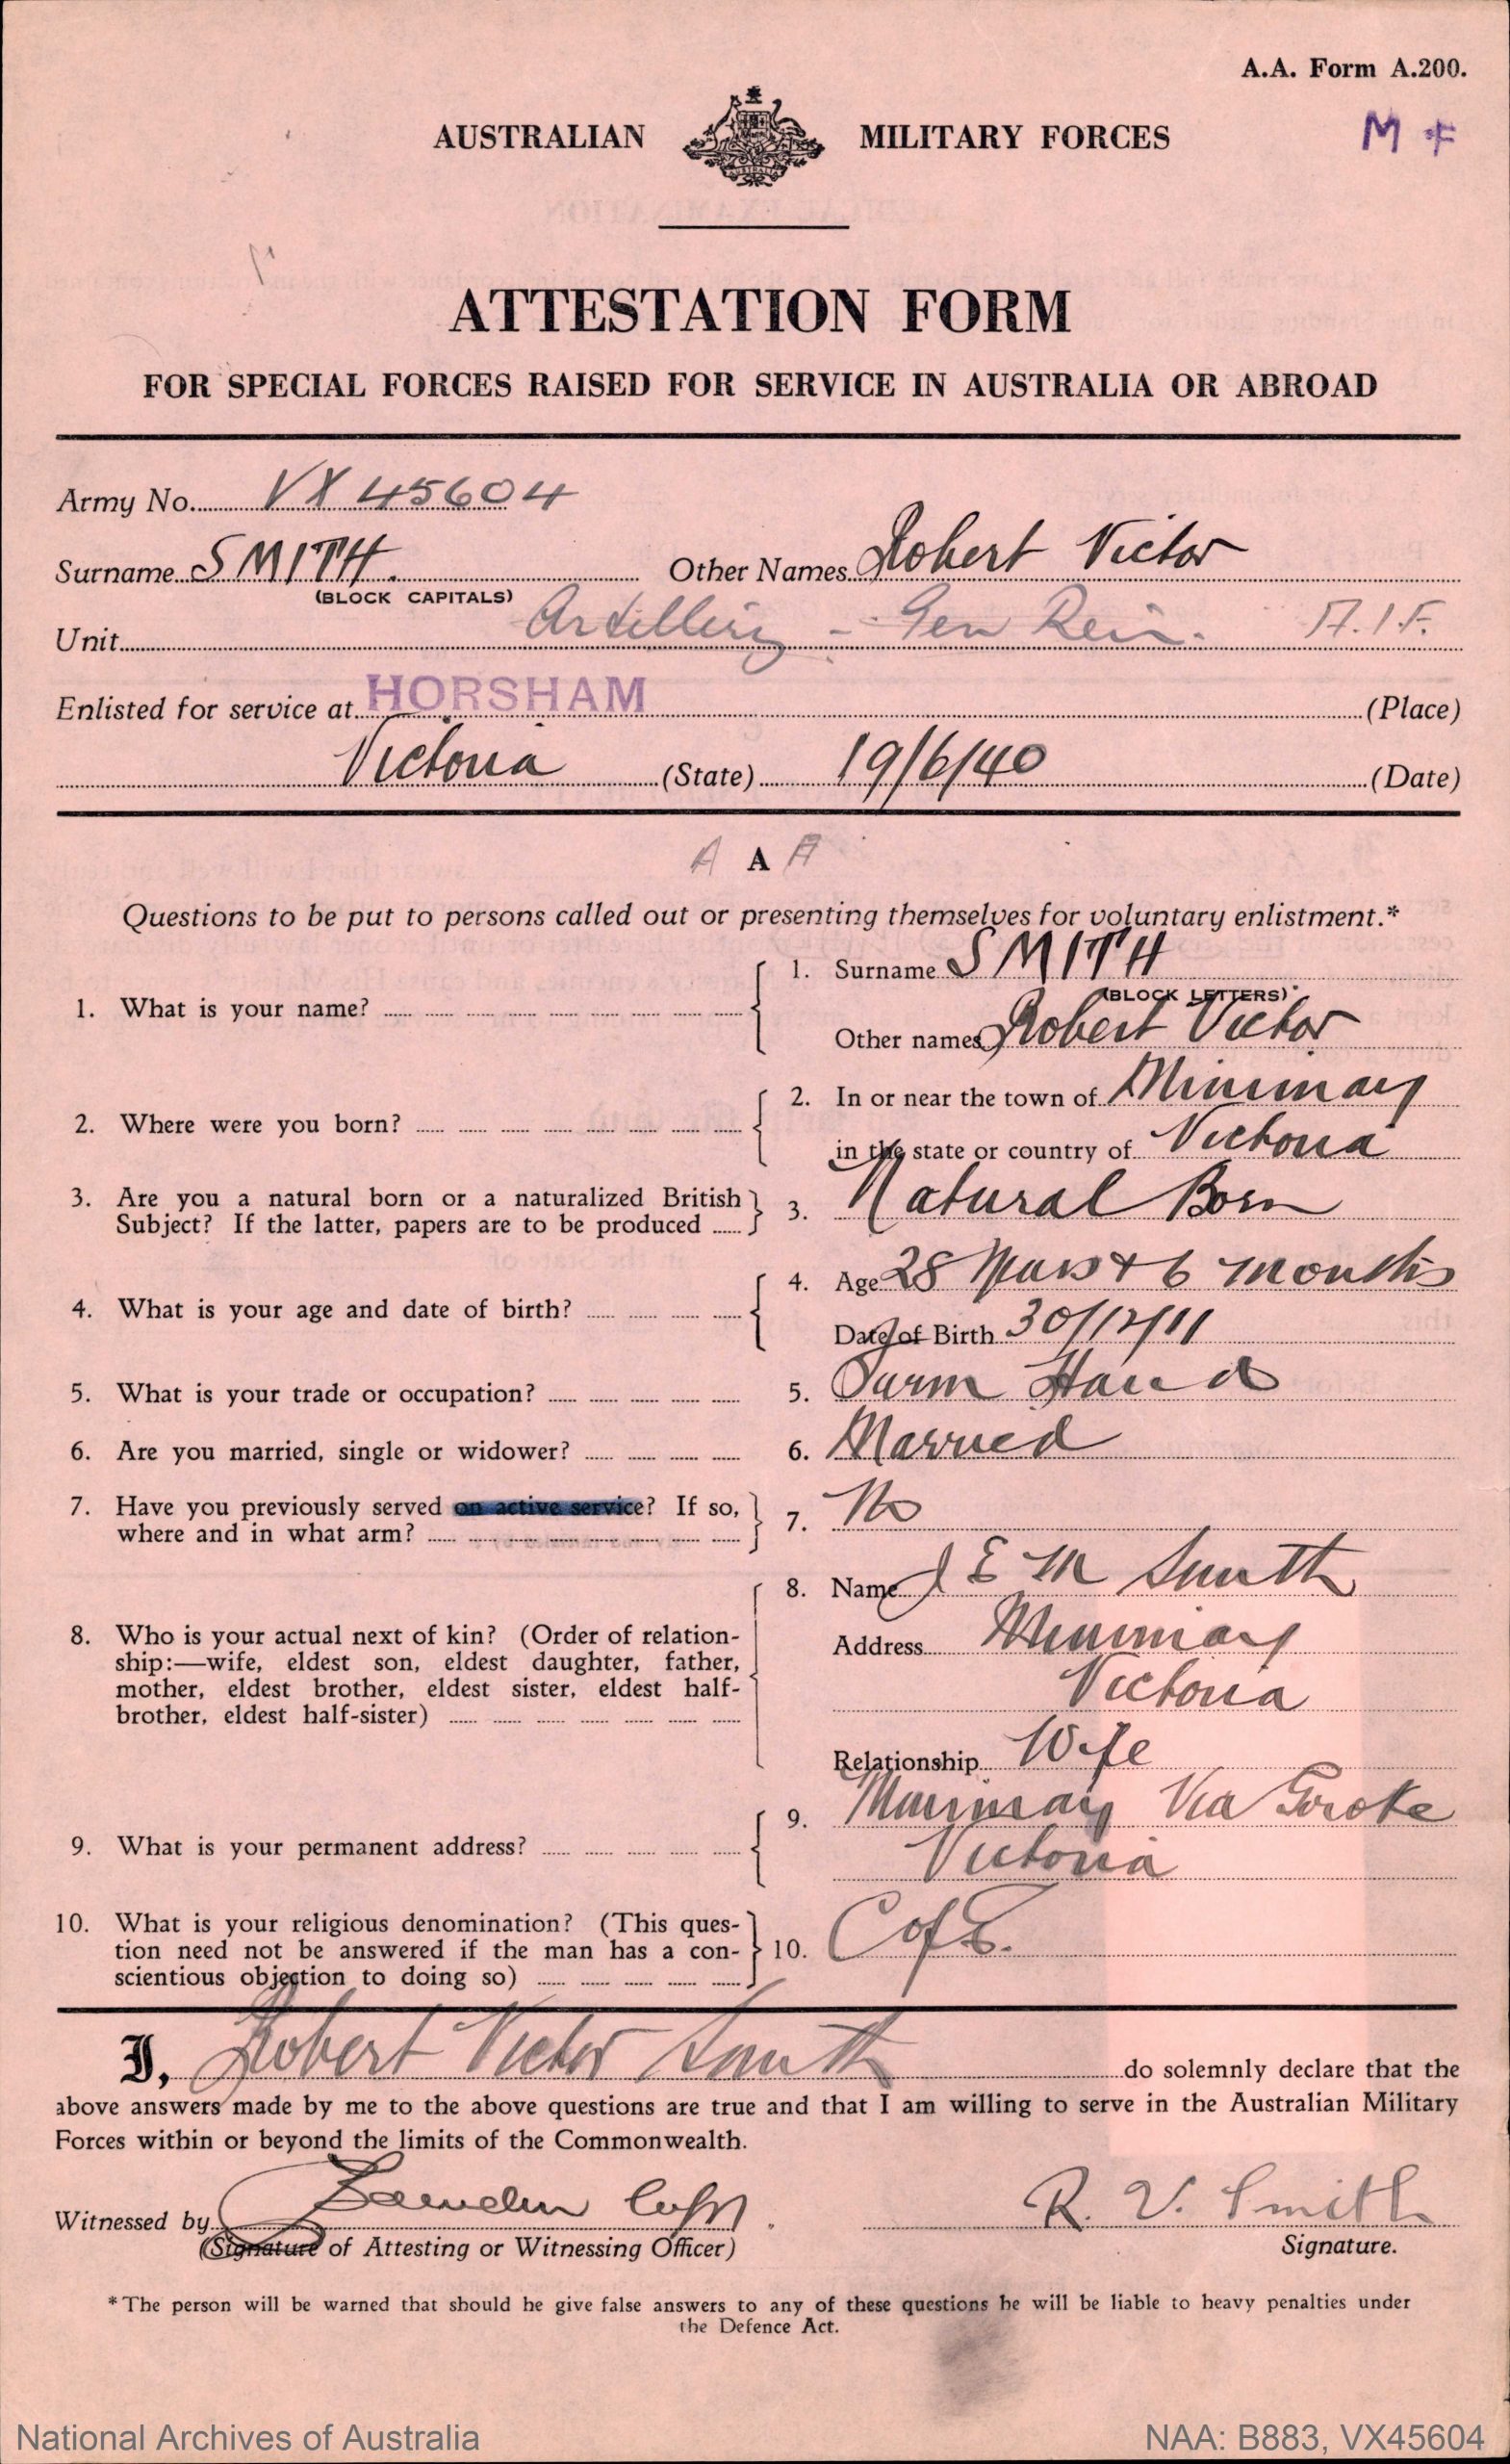 A.A. Form A.200.
AUSTRALIAN MILITARY FORCES
M F
ATTESTATION FORM
FOR SPECIAL FORCES RAISED FOR SERVICE IN AUSTRALIA OR ABROAD
Army No. VX 45604
Surname SMITH. Other Names Robert Victor
(BLOCK CAPITALS)
Unit Artillery - Gen Rein. A.I.F.
Enlisted for service at HORSHAM (Place)
Victoria (State) 19/6/40 (Date)
A A A
Questions to be put to persons called out or presenting themselves for voluntary enlistment.*
1. What is your name? 1. Surname SMITH
(BLOCK LETTERS)
Other names Robert Victor
2. Where were you born? 2. In or near the town of Minimay
in the state or country of Victoria
3. Are you a natural born or a naturalized British
Subject? If the latter, papers are to be produced 3. Natural Born
4. What is your age and date of birth? 4. Age 28 years + 6 months
Date of Birth 30/12/11
5. What is your trade or occupation? 5. Farm Hand
6. Are you married, single or widower? 6. Married
7. Have you previously served on active service? If so,
where and in what arm? 7. No
8. Who is your actual next of kin? (Order of relation-
ship:—wife, eldest son, eldest daughter, father,
mother, eldest brother, eldest sister, eldest half-
brother, eldest half-sister)
8. Name E M Smith
Address Minimay
Victoria
Relationship Wife
9. What is your permanent address? 9. Minimay Via Goroke
Victoria
10. What is your religious denomination? (This ques-
tion need not be answered if the man has a con-
scientious objection to doing so) 10. C of E.
I, Robert Victor Smith do solemnly declare that the
above answers made by me to the above questions are true and that I am willing to serve in the Australian Military
Forces within or beyond the limits of the Commonwealth.
Witnessed by R. V. Smith
(Signature of Attesting or Witnessing Officer) Signature.
*The person will be warned that should he give false answers to any of these questions he will be liable to heavy penalties under
the Defence Act.
National Archives of Australia NAA: B883, VX45604